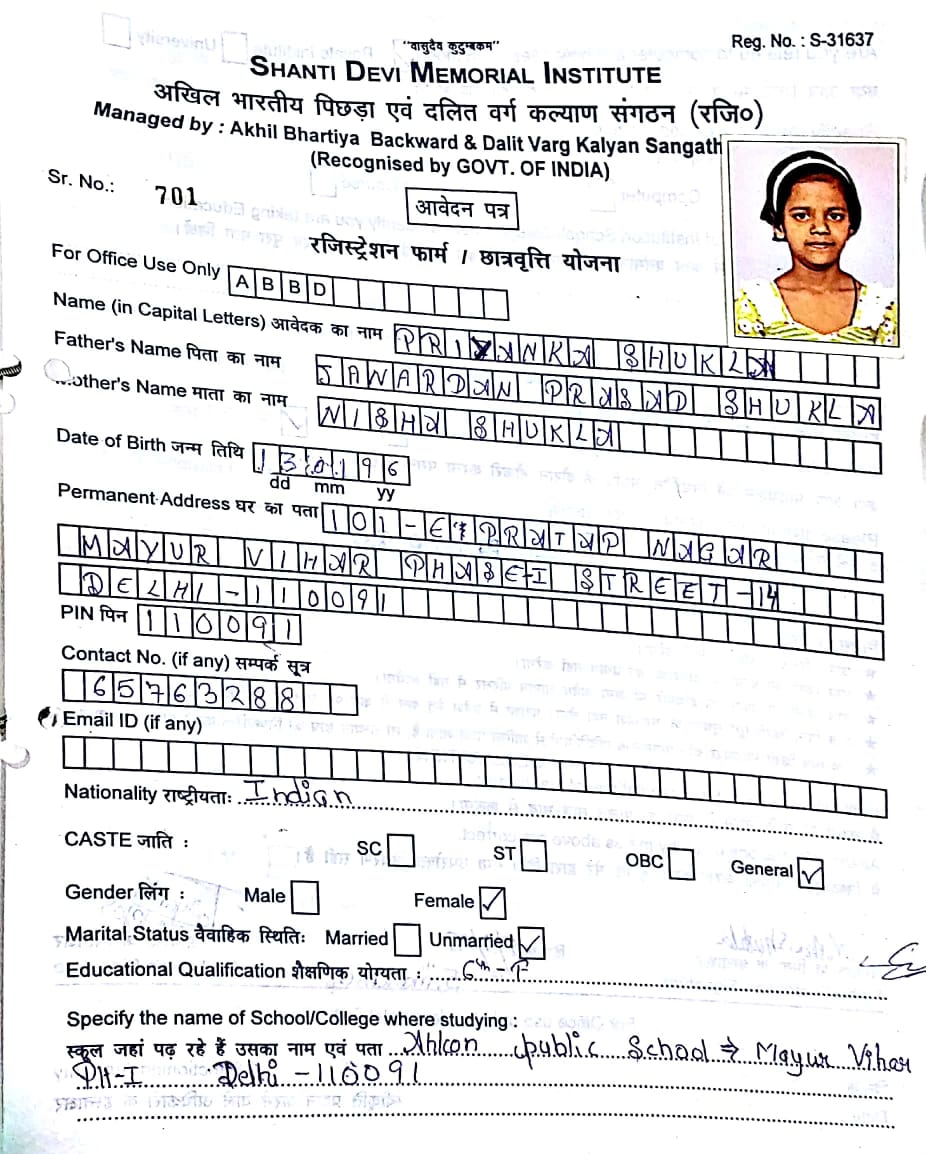 "वासुदेव कुटुम्बकम"
Reg. No. : S-31637
SHANTI DEVI MEMORIAL INSTITUTE
अखिल भारतीय पिछड़ा एवं दलित वर्ग कल्याण संगठन (रजि०)
Managed by : Akhil Bhartiya Backward & Dalit Varg Kalyan Sangath
(Recognised by GOVT. OF INDIA)
Sr. No.: 701
आवेदन पत्र
रजिस्ट्रेशन फार्म / छात्रवृत्ति योजना
For Office Use Only ABBD
Name (in Capital Letters) आवेदक का नाम PRIYANKA SHUKLA
Father's Name पिता का नाम JANARDAN PRASAD SHUKLA
Mother's Name माता का नाम NISHA SHUKLA
Date of Birth जन्म तिथि 130196
dd mm yy
Permanent Address घर का पता 101-E PRATAP NAGAR
MAYUR VIHAR PHASE-I STREET-14
DELHI-110091
PIN पिन 110091
Contact No. (if any) सम्पर्क सूत्र
65763288
Email ID (if any)
Nationality राष्ट्रीयताः Indian
CASTE जाति : SC ST OBC General ✓
Gender लिंग : Male Female ✓
Marital Status वैवाहिक स्थितिः Married Unmarried ✓
Educational Qualification शैक्षणिक योग्यता : 6th-F
Specify the name of School/College where studying :
स्कूल जहां पढ़ रहे हैं उसका नाम एवं पता Ahlcon public School → Mayur Vihar
PH-I Delhi-110091